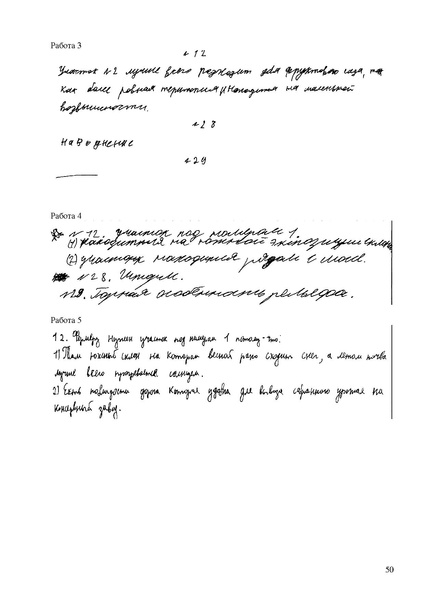 Работа 3
№ 12
Участок №2 лучше всего подходит для фруктового сада, так
как более ровная территория и находится на маленькой
возвышенности.
№ 28
Наводнение
№ 29
Работа 4
№ 12. участок под номером 1.
(1) находиться на южной экспозиции склона
(2) участок находится рядом с шоссе.
№ 28. Шторм.
№9. Горная особенность рельефа.
Работа 5
12. Фермеру нужен участок под номером 1 потому-что:
1) Там южный склон на котором весной рано сходит снег, а летом почва
лучше всего прогревается солнцем.
2) Есть поблизости дорога которая удобна для вывоза собранного урожая на
консервный завод.
50